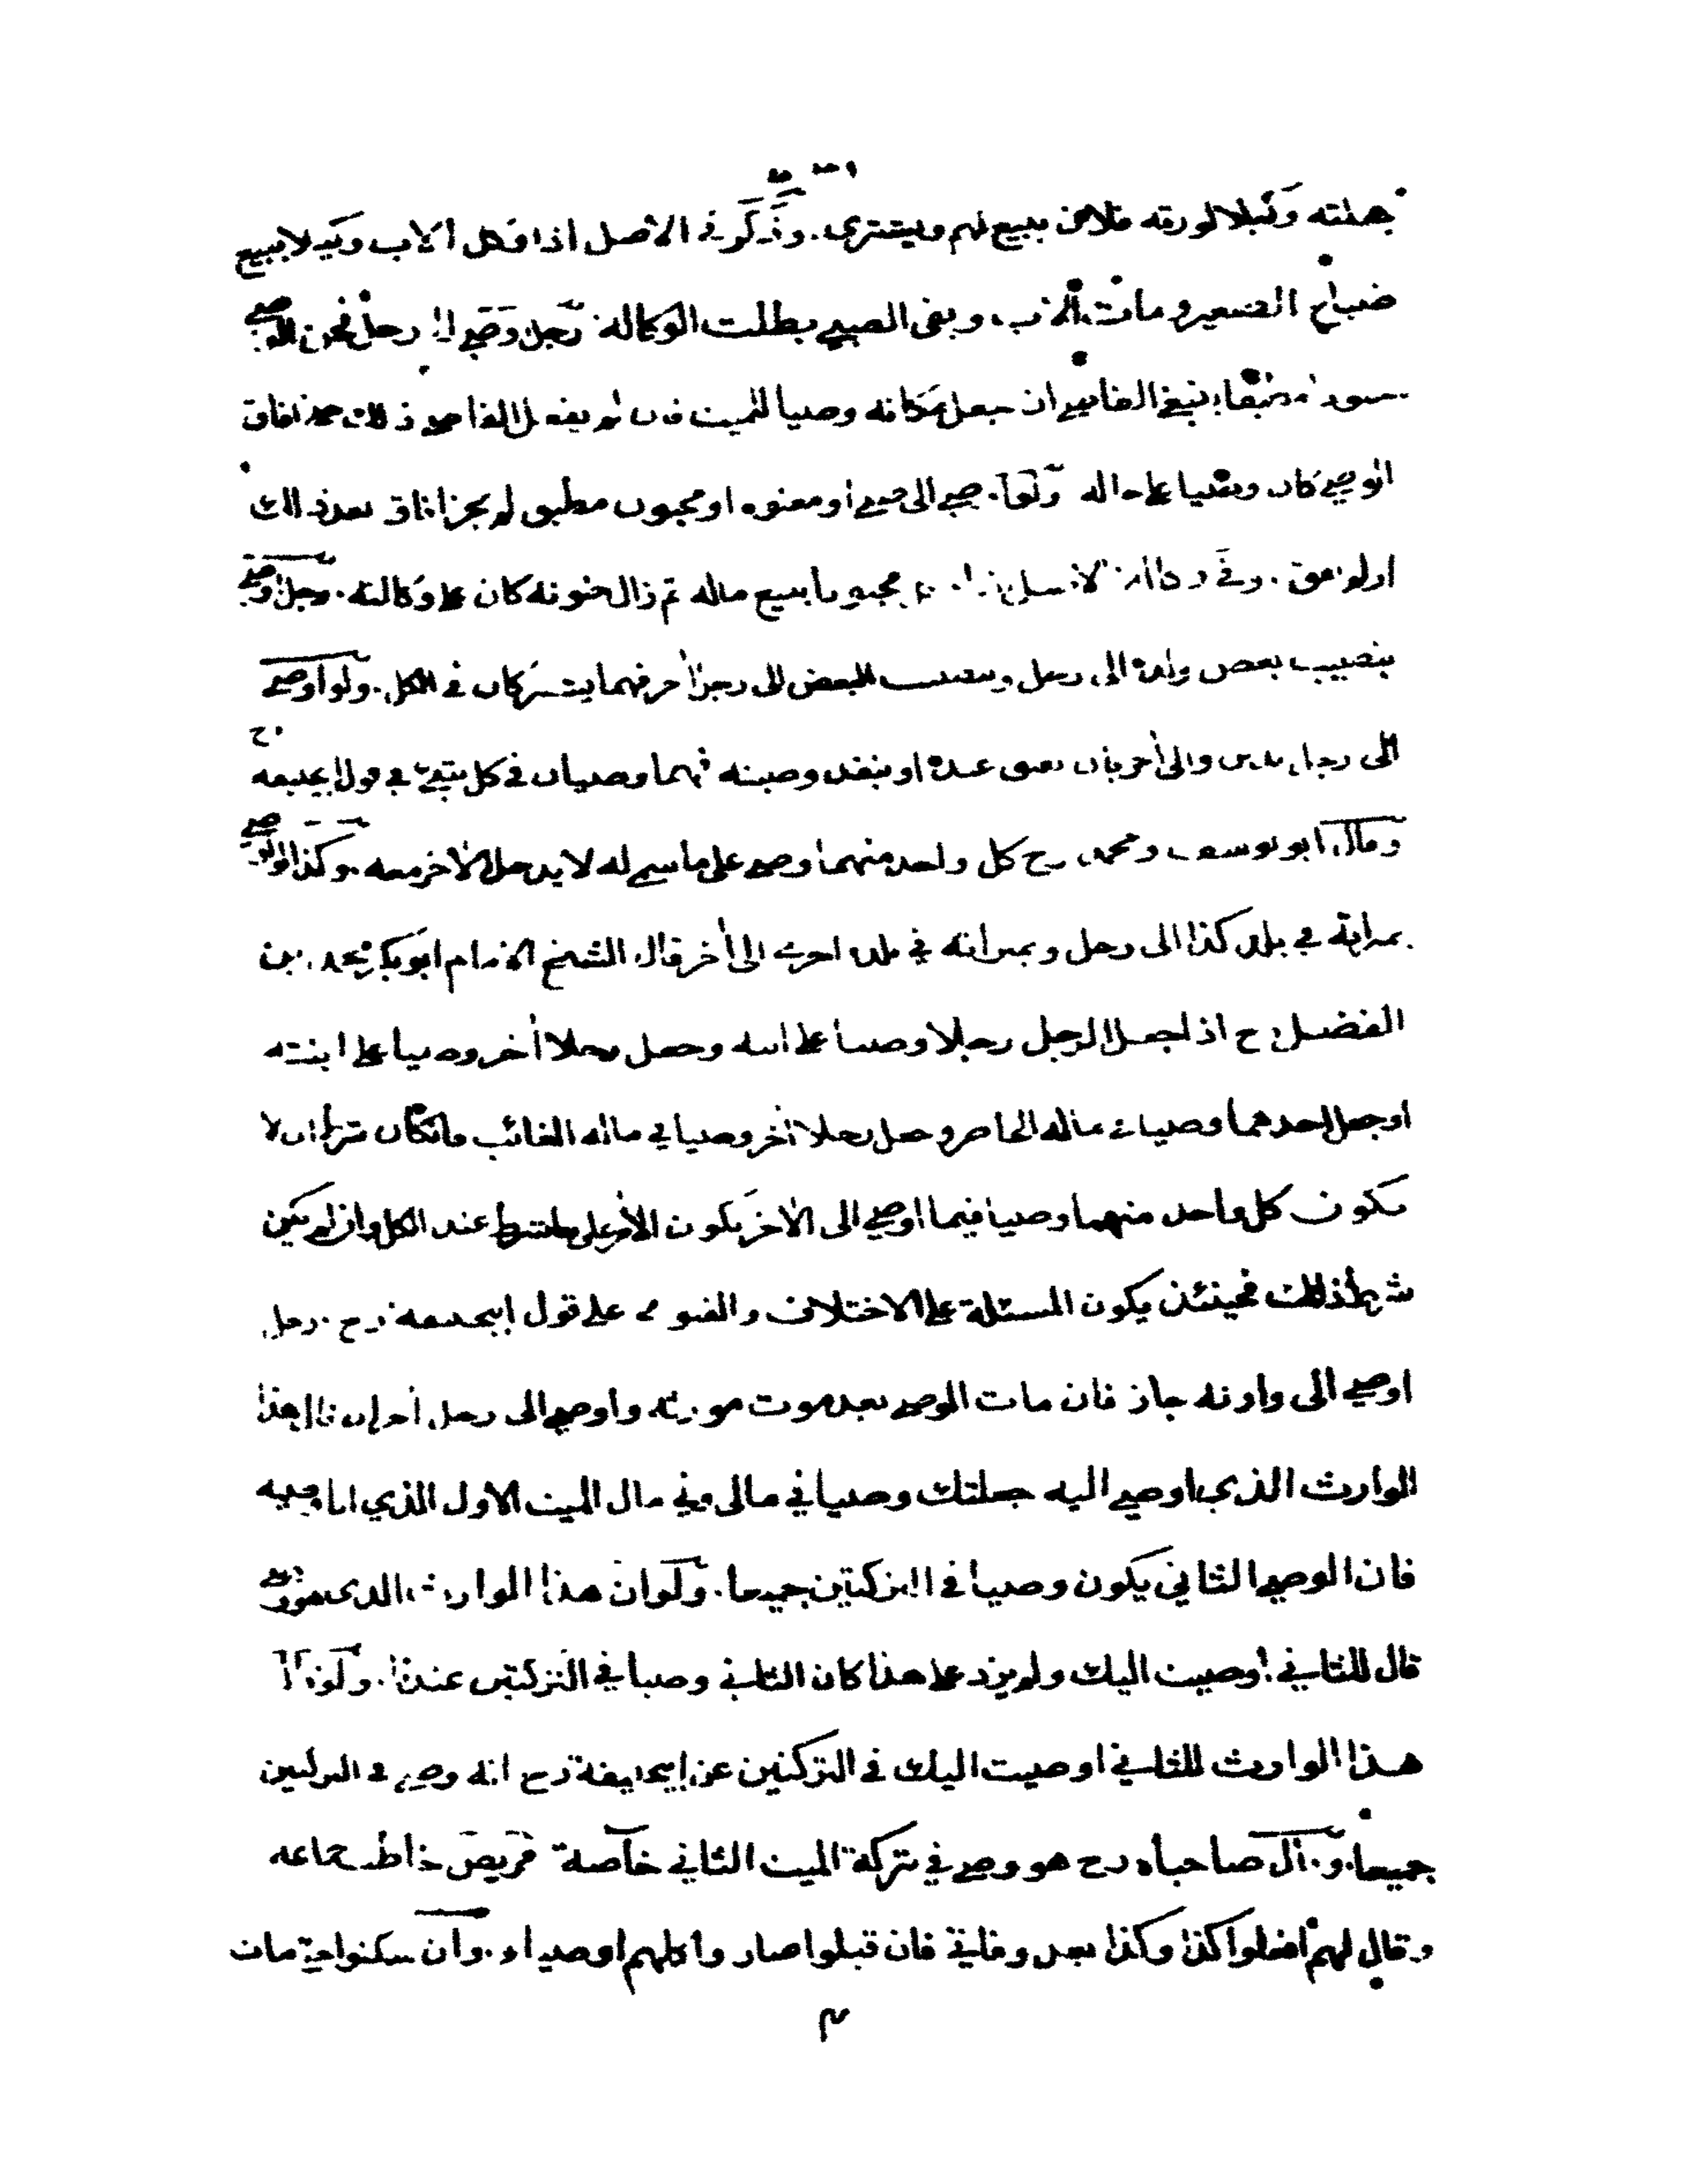 جعلته وكيلا لورثة فلان يبيع لهم ويشتري. وذكر في الاصل اذا وكل الاب وكيلا يبيع
ضياع الصغير ومات الاب وبقي الصبي بطلت الوكالة رجل وصي الى رجل فجن
ينبغي للقاضي ان يجعل مكانه وصيا للميت فان لم يفعل القاضي ذلك حتى افاق
الوصي كان وصيا على حاله ولو اوصى الى صبي او معتوه او مجنون مطبق لم يجز افاق بعد ذلك
او لم يفق. وفي مجنونا ببيع ماله ثم زال جنونه كان على وكالته. رجل اوصى
بنصيب بعض ولده الى رجل وبنصيب البعض الى رجل آخر فهما يشتركان في الكل. ولو اوصى
الى رجل بدين والى آخر بان يعتق عبده او ينفذ وصيته فهما وصيان في كل شيء في قول ابي حنيفة رح
وقال ابو يوسف ومحمد رح كل واحد منهما وصي على ما سمي له لا يدخل الآخر معه. وكذا لو اوصى
بميراثه في بلد كذا الى رجل وبميراثه في بلد اخرى الى آخر قال الشيخ الامام ابو بكر محمد بن
الفضل رح اذا جعل الرجل رجلا وصيا على ابنه وجعل رجلا آخر وصيا على ابنته
او جعل احدهما وصيا في ماله الحاضر وجعل رجلا آخر وصيا في ماله الغائب فان كان شرط ان لا
يكون كل واحد منهما وصيا فيما اوصى الى الآخر يكون الامر على ما شرط عند الكل وان لم يكن
شرط ذلك فحينئذ يكون المسئلة على الاختلاف والفتوى على قول ابي حنيفة رح. رجل
اوصى الى وارثه جاز فان مات الوصي بعد موت مورثه واوصى الى رجل آخر ان قال هذا
الوارث الذي اوصى اليه جعلتك وصيا في مالي وفي مال الميت الاول الذي انا وصيه
فان الوصي الثاني يكون وصيا في التركتين جميعا. ولو ان هذا الوارث الذي هو وصي
قال للثاني اوصيت اليك ولم يزد على هذا كان الثاني وصيا في التركتين عندنا. ولو قال
هذا الوارث للثاني اوصيت اليك في التركتين عن ابي حنيفة رح انه وصي في التركتين
جميعا. وقال صاحباه رح هو وصي في تركة الميت الثاني خاصة مريض خاطب جماعة
وقال لهم افعلوا كذا وكذا بعد وفاتي فان قبلوا صاروا كلهم اوصياء. وان سكتوا حتى مات